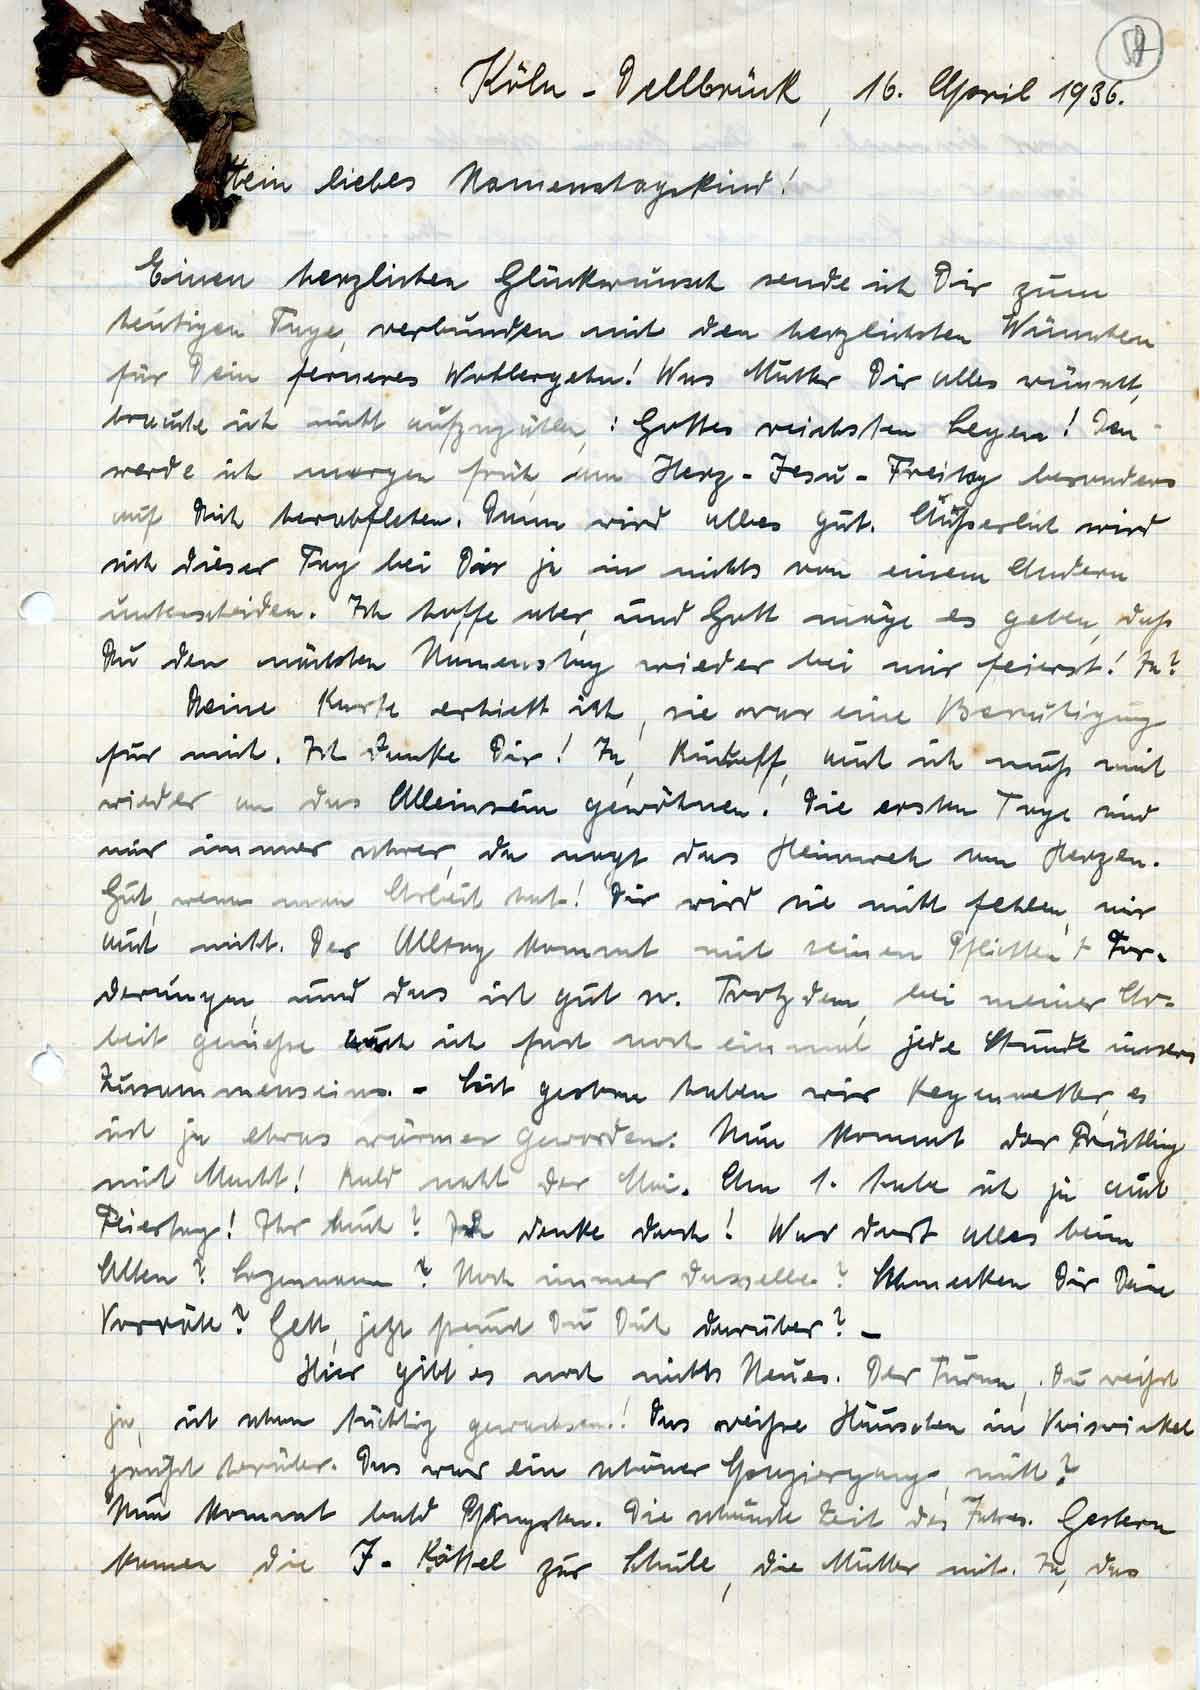 58
Köln - Dellbrück, 16. April 1936.
Mein liebes Namenstagskind!
Einen herzlichen Glückwunsch sende ich Dir zum
heutigen Tage, verbunden mit den herzlichsten Wünschen
für Dein ferneres Wohlergehn! Was Mutter Dir alles wünscht,
brauche ich nicht aufzuzählen, : Gottes reichsten Segen! Den
werde ich morgen früh, am Herz-Jesu-Freitag besonders
auf Dich herabflehen. Dann wird alles gut. Äußerlich wird
sich dieser Tag bei Dir ja in nichts von einem Andern
unterscheiden. Ich hoffe aber, und Gott möge es geben, daß
Du den nächsten Namenstag wieder bei mir feierst! Ja?
Deine Karte erhielt ich, sie war eine Beruhigung
für mich. Ich danke Dir! Ja, auch ich muß mich
wieder an das Alleinsein gewöhnen. Die ersten Tage sind
mir immer schwer, da nagt das Heimweh am Herzen.
Gut, wenn man Arbeit hat! Dir wird sie nicht fehlen, mir
auch nicht. Der Alltag kommt mit seinen Pflichten + For-
derungen, und das ist gut so. Trotzdem, bei meiner Ar-
beit genieße auch ich fast noch einmal jede Stunde unsers
Zusammenseins. - Seit gestern haben wir Regenwetter, es
ist ja etwas wärmer geworden. Nun kommt der Frühling
mit Macht! Bald naht der Mai. Am 1. habe ich ja auch
Feiertag! Ihr auch? Ich denke doch! War dort alles beim
Alten? ? Noch immer dasselbe? Schmecken Dir Deine
Vorräte? Gelt, jetzt freust Du Dich darüber? -
Hier gibt es noch nichts Neues. Der Turm, Du weißt
ja, ist schon tüchtig gewachsen! Das weiße Häuschen in Voiswinkel
grüßt herüber. Das war ein schöner Spaziergang, nicht?
Nun kommt bald Pfingsten. Die schönste Zeit des Jahres. Gestern
kamen die I-Köttel zur Schule, die Mütter mit. Ja, das